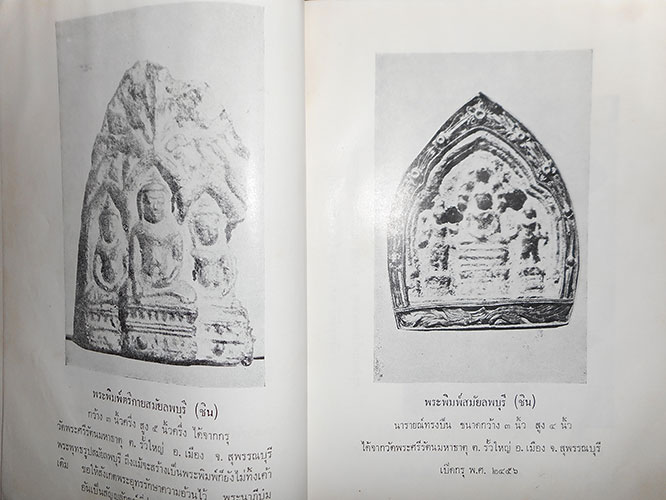 พระพิมพ์ตรีกายสมัยลพบุรี (ชิน)
กว้าง ๓ นิ้วครึ่ง สูง ๕ นิ้วครึ่ง ได้จากกรุ
วัดพระศรีรัตนมหาธาตุ ต. รั้วใหญ่ อ. เมือง จ. สุพรรณบุรี
พระพุทธรูปสมัยลพบุรี ถึงแม้จะสร้างเป็นพระพิมพ์ก็ยังไม่ทิ้งเค้า
เดิม ขอให้สังเกตพระอุทรรักษาความอ้วนไว้ พระนาภีบุ๋ม
พระพิมพ์สมัยลพบุรี (ชิน)
นารายณ์ทรงปืน ขนาดกว้าง ๓ นิ้ว สูง ๔ นิ้ว
ได้จากวัดพระศรีรัตนมหาธาตุ ต. รั้วใหญ่ อ. เมือง จ. สุพรรณบุรี
เปิดกรุ พ.ศ. ๒๔๕๖